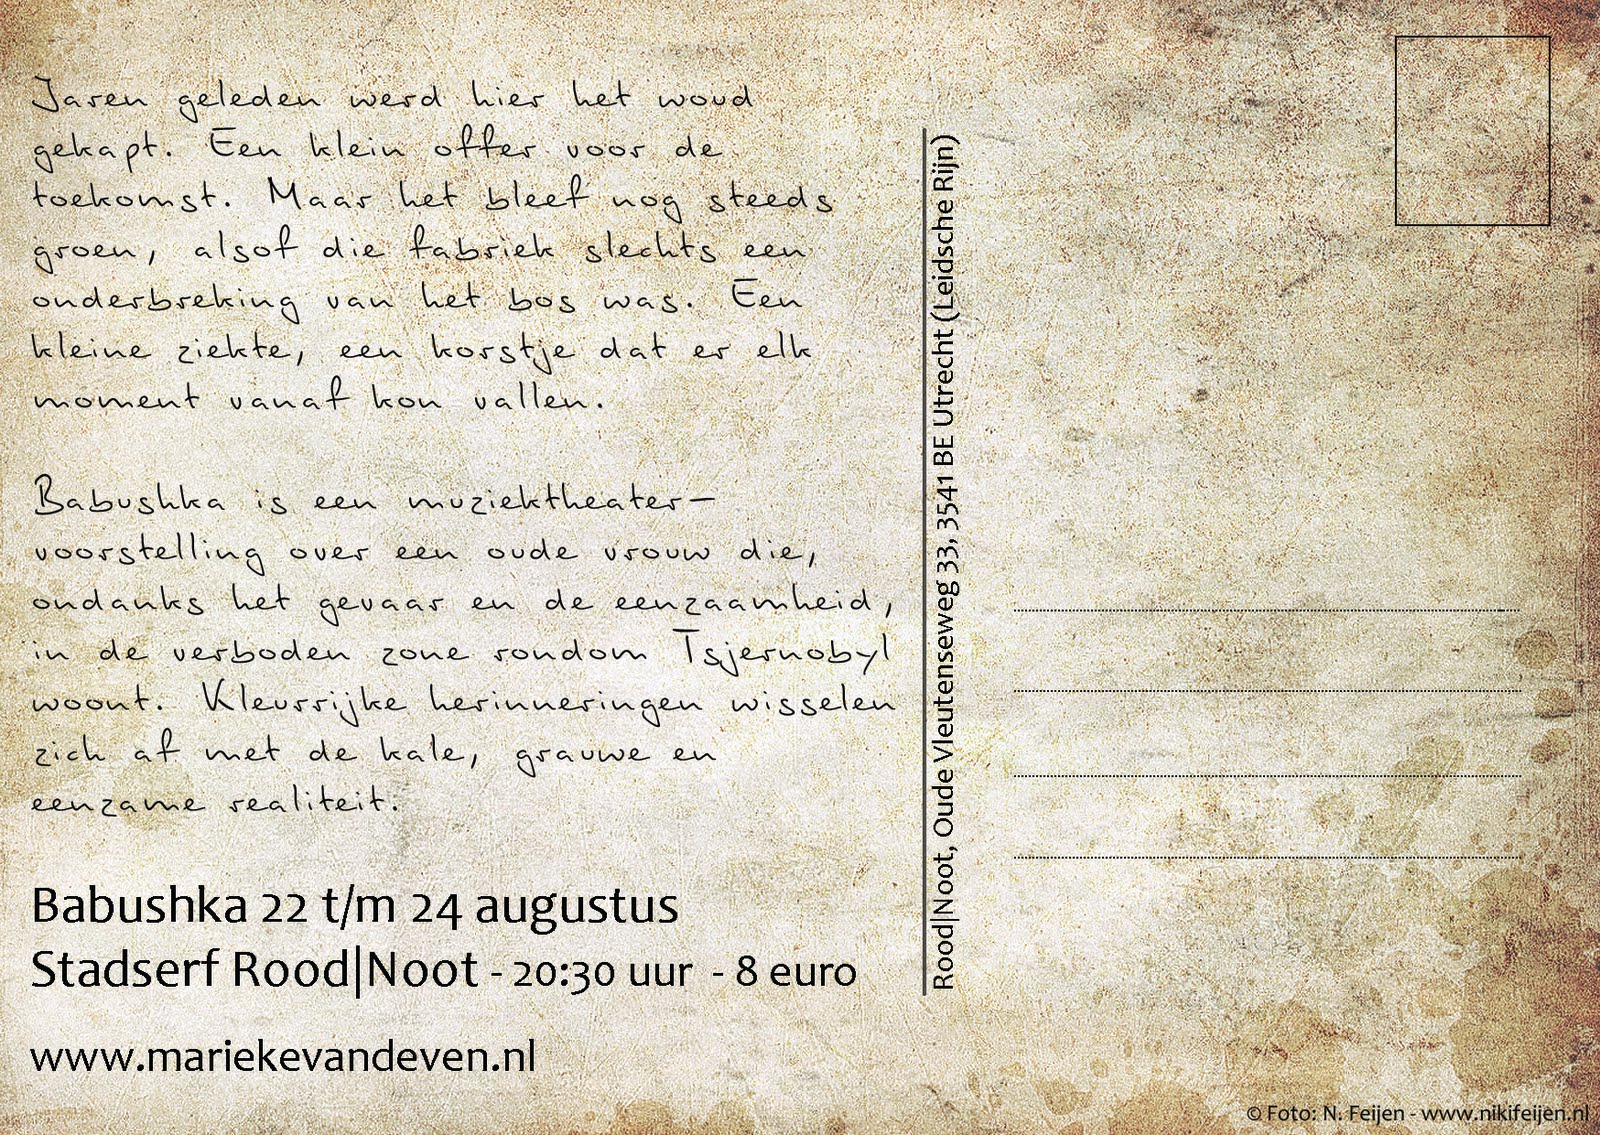 Jaren geleden werd hier het woud
gekapt. Een klein offer voor de
toekomst. Maar het bleef nog steeds
groen, alsof die fabriek slechts een
onderbreking van het bos was. Een
kleine ziekte, een korstje dat er elk
moment vanaf kon vallen.
Babushka is een muziektheater-
voorstelling over een oude vrouw die,
ondanks het gevaar en de eenzaamheid,
in de verboden zone rondom Tsjernobyl
woont. Kleurrijke herinneringen wisselen
zich af met de kale, grauwe en
eenzame realiteit.
Babushka 22 t/m 24 augustus
Stadserf Rood|Noot - 20:30 uur - 8 euro
www.mariekevandeven.nl
Rood|Noot, Oude Vleutenseweg 33, 3541 BE Utrecht (Leidsche Rijn)
© Foto: N. Feijen - www.nikifeijen.nl